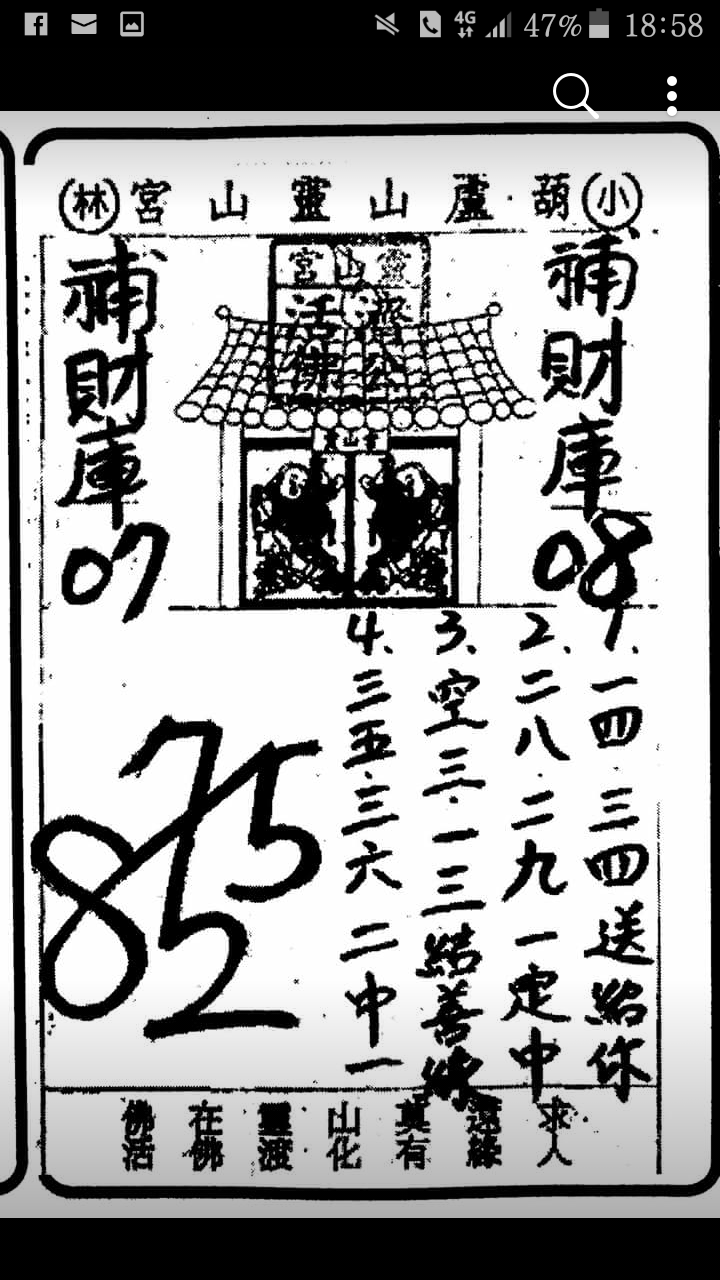 4G 47% 18:58
小葫蘆山靈山宮林
補財庫
08
補財庫
07
靈山宮
濟公
活佛
靈山宮
1、一四·三四送給你
2、二八·二九一定中
3、空三·一三結善緣
4、三五·三六二中一
7 5
8 2
求人
遠緣
真有
山化
靈渡
在佛
佛活